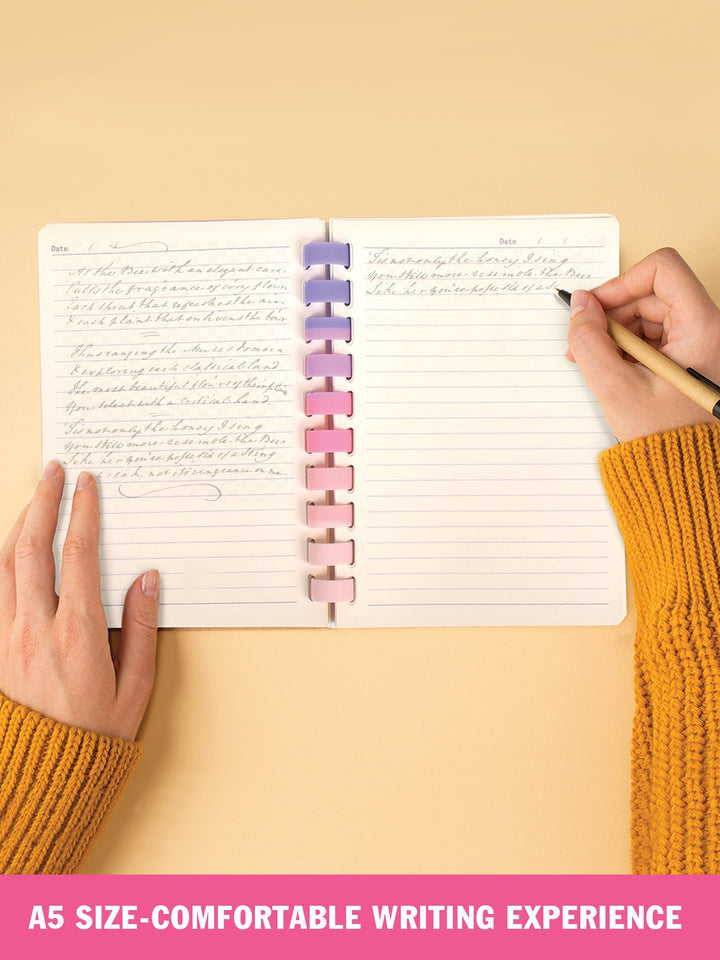 Date. / /
As the Bee with an elegant care
Culls the fragrance of every flow'r
Each shrub that refreshes the air
& each plant that enlivens the bow'r
Thus ranging the Muses domain
& exploring each classical land
The most beautiful flow'rs of the
You select with a critical hand.
Tis not only the honey I sing
You still more resemble the Bee
Like her you're possess'd of a sting
not its vengeance on me.
Date. / /
Tis not only the honey I sing
You still more resemble the Bee
Like her you're possess'd of a
A5 SIZE-COMFORTABLE WRITING EXPERIENCE